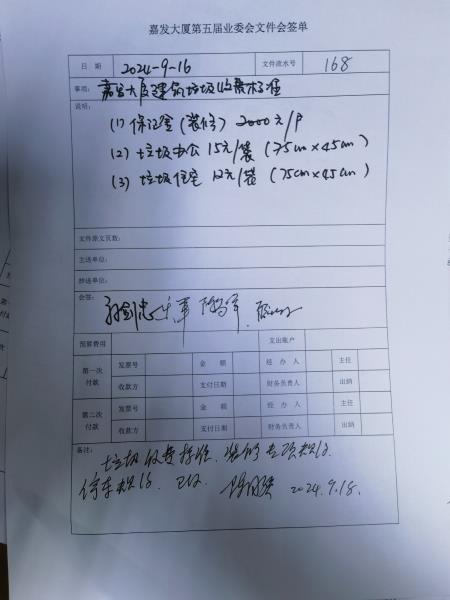 嘉发大厦第五届业委会文件会签单
日 期 2024-9-16 文件流水号 168
事项: 嘉发大厦建筑垃圾收费标准
说明:
(1) 保证金(装修) 2000元/户
(2) 垃圾办公 15元/袋 (75cm×45cm)
(3) 垃圾住宅 12元/袋 (75cm×45cm)
文件原文页数:
主送单位:
抄送单位:
会签:
预算费用 支出账户
第一次付款 发票号 金 额 经 办 人 主任
收款方 支付日期 财务负责人 出纳
第二次付款 发票号 金 额 经 办 人 主任
收款方 支付日期 财务负责人 出纳
备注:
垃圾收费标准
停车 2024.9.18.